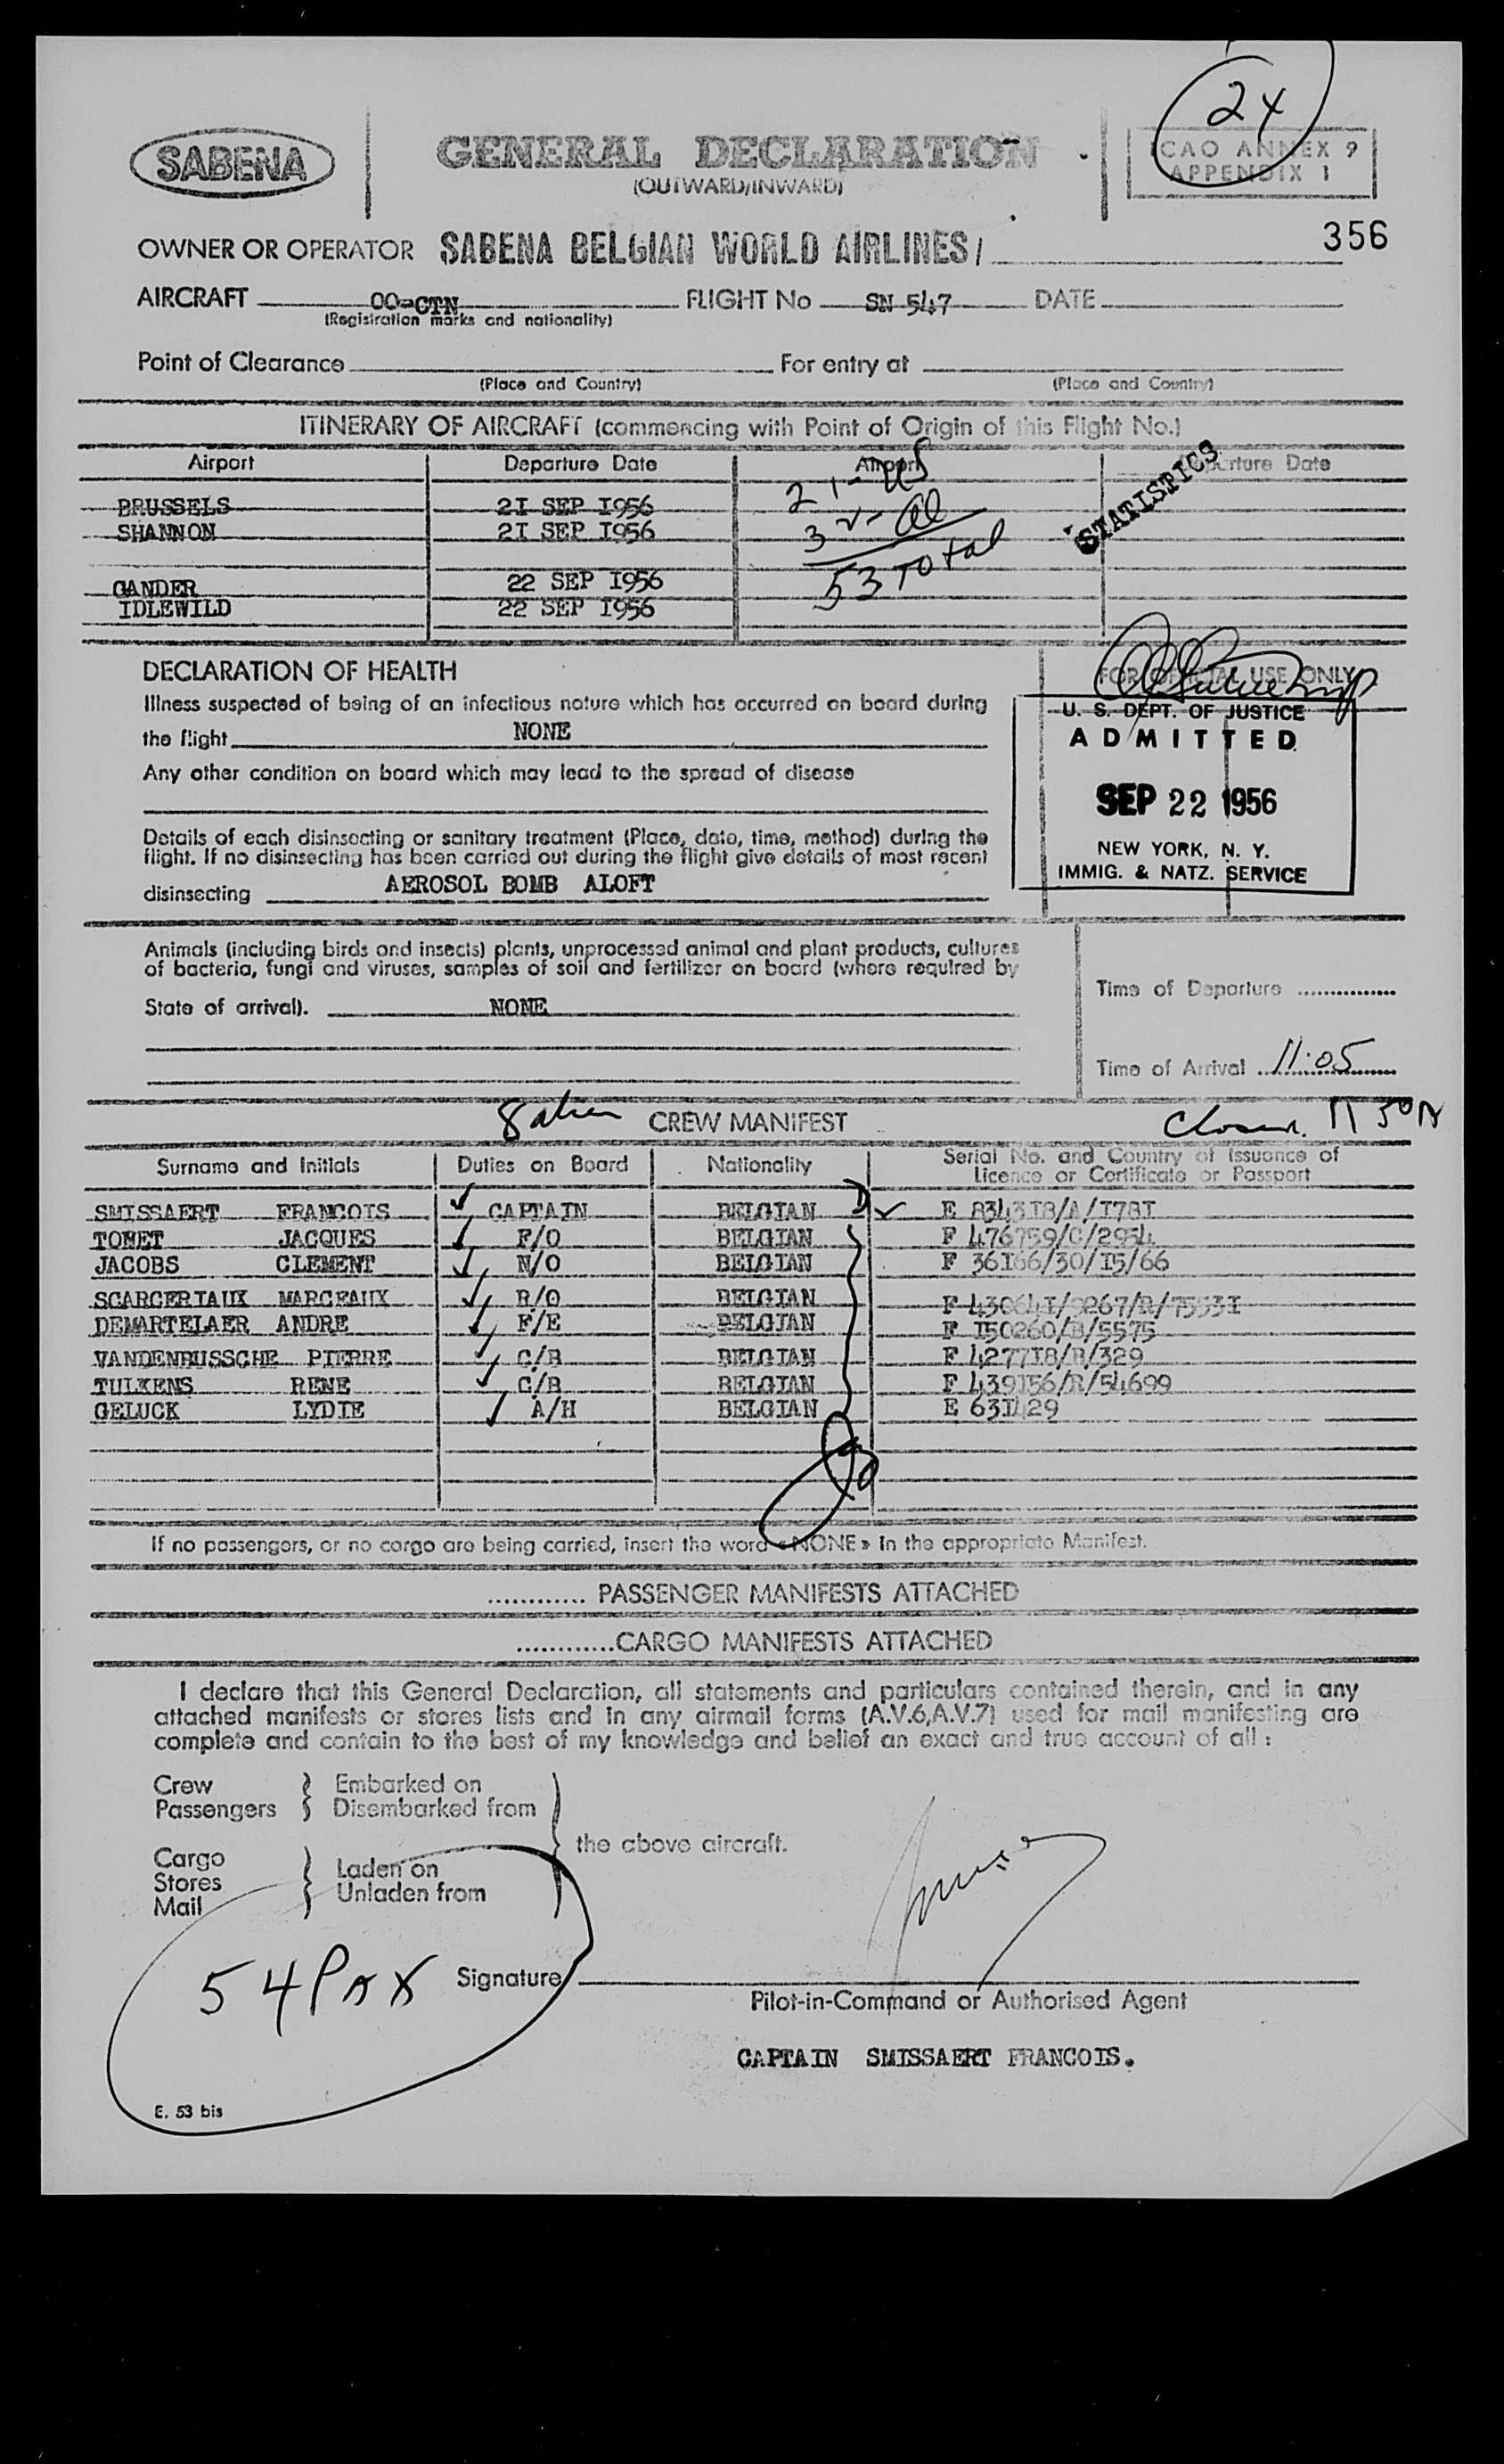 24
SABENA
GENERAL DECLARATION
(OUTWARD/INWARD)
ICAO ANNEX 9
APPENDIX 1
356
OWNER OR OPERATOR SABENA BELGIAN WORLD AIRLINES/
AIRCRAFT OO-CTN FLIGHT No SN 547 DATE
(Registration marks and nationality)
Point of Clearance For entry at
(Place and Country) (Place and Country)
ITINERARY OF AIRCRAFT (commencing with Point of Origin of this Flight No.)
Airport Departure Date Airport Departure Date
BRUSSELS 2I SEP I956
SHANNON 2I SEP I956
GANDER 22 SEP I956
IDLEWILD 22 SEP I956
21-US
32-al
53 Total
STATISTICS
DECLARATION OF HEALTH
FOR OFFICIAL USE ONLY
Illness suspected of being of an infectious nature which has occurred on board during
the flight NONE
Any other condition on board which may lead to the spread of disease
Details of each disinsecting or sanitary treatment (Place, date, time, method) during the
flight. If no disinsecting has been carried out during the flight give details of most recent
disinsecting AEROSOL BOMB ALOFT
U. S. DEPT. OF JUSTICE
ADMITTED
SEP 22 1956
NEW YORK, N. Y.
IMMIG. & NATZ. SERVICE
Animals (including birds and insects) plants, unprocessed animal and plant products, cultures
of bacteria, fungi and viruses, samples of soil and fertilizer on board (where required by
State of arrival). NONE
Time of Departure
Time of Arrival 11:05
8 CREW MANIFEST 1150
Surname and Initials Duties on Board Nationality Serial No. and Country of Issuance of
Licence or Certificate or Passport
SMISSAERT FRANCOIS CAPTAIN BELGIAN E 8343I8/A/I78I
TONET JACQUES F/O BELGIAN F 476759/C/2954
JACOBS CLEMENT N/O BELGIAN F 36I66/30/I5/66
SCARCERIAUX MARCEAUX R/O BELGIAN
DEMARTELAER ANDRE F/E BELGIAN F I50260/B/5575
VANDENBUSSCHE PIERRE C/B BELGIAN F 4277I8/B/329
TULKENS RENE C/B BELGIAN F 439I56/R/54699
GELUCK LYDIE A/H BELGIAN E 63I429
If no passengers, or no cargo are being carried, insert the word « NONE » in the appropriate Manifest.
............ PASSENGER MANIFESTS ATTACHED
............CARGO MANIFESTS ATTACHED
I declare that this General Declaration, all statements and particulars contained therein, and in any
attached manifests or stores lists and in any airmail forms (A.V.6,A.V.7) used for mail manifesting are
complete and contain to the best of my knowledge and belief an exact and true account of all :
Crew Embarked on
Passengers Disembarked from
the above aircraft.
Cargo Laden on
Stores Unladen from
Mail
54 PAX
Signature
Pilot-in-Command or Authorised Agent
CAPTAIN SMISSAERT FRANCOIS.
E. 53 bis